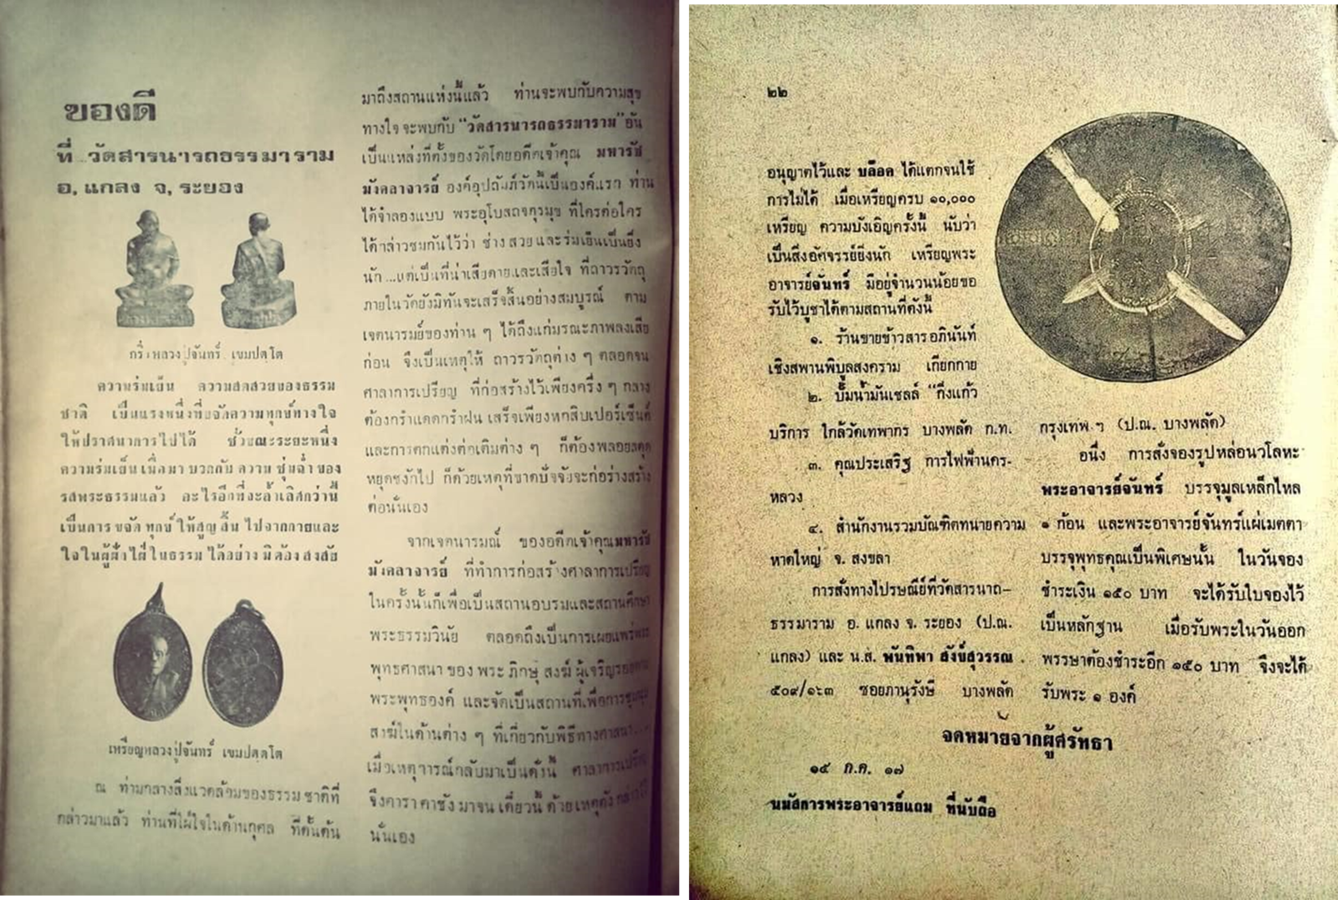 ของดี
ที่ วัดสารนารถธรรมาราม
อ, แกลง จ, ระยอง
กริ่งหลวงปู่จันทร์ เขมปตฺโต
ความร่มเย็น ความสดสวยของธรรม
ชาติ เป็นแรงหนึ่งที่ขจัดความทุกข์ทางใจ
ให้ปราศนาการไปได้ ชั่วขณะระยะหนึ่ง
ความร่มเย็นเมื่อมา บวกกับ ความ ชุ่มฉ่ำ ของ
รสพระธรรมแล้ว อะไรอีกที่จะล้ำเลิศกว่านี้
เป็นการ ขจัด ทุกข์ ให้สูญ สิ้น ไปจากกายและ
ใจในผู้ฝ่าใฝ่ ในธรรม ได้อย่าง มิต้อง สงสัย
เหรียญหลวงปู่จันทร์ เขมปตฺตโต
ณ ท่ามกลางสิ่งแวดล้อมของธรรม ชาติที่
กล่าวมาแล้ว ท่านที่ใฝ่ใจในด้านกุศล ที่ดั้นด้น
มาถึงสถานแห่งนี้แล้ว ท่านจะพบกับความสุข
ทางใจ จะพบกับ "วัดสารนารถธรรมาราม" อัน
เป็นแหล่งที่ตั้งของวัดโดยอดีตเจ้าคุณ มหารัช
มังคลาจารย์ องค์อุปถัมภ์วัดนี้เป็นองค์แรก ท่าน
ได้จำลองแบบ พระอุโบสถจตุรมุข ที่ใครต่อใคร
ได้กล่าวชมกันไว้ว่า ช่าง สวย และร่มเย็นเป็นยิ่ง
นัก ...แต่เป็นที่น่าเสียดายและเสียใจ ที่ถาวรวัตถุ
ภายในวัดยังมิทันจะเสร็จสิ้นอย่างสมบูรณ์ ตาม
เจตนารมย์ของท่าน ๆ ได้ถึงแก่มรณะภาพลงเสีย
ก่อน จึงเป็นเหตุให้ ถาวรวัตถุต่าง ๆ ตลอดจน
ศาลาการเปรียญ ที่ก่อสร้างไว้เพียงครึ่ง ๆ กลาง
ต้องกรำแดดกรำฝน เสร็จเพียงหกสิบเปอร์เซ็นต์
และการตกแต่งต่อเติมต่าง ๆ ก็ต้องพลอยหยุด
หยุดชงักไป ก็ด้วยเหตุที่ขาดปัจจัยจะก่อร่างสร้าง
ต่อนั่นเอง
จากเจตนารมณ์ ของอดีตเจ้าคุณมหารัช
มังคลาจารย์ ที่ทำการก่อสร้างศาลาการเปรียญ
ในครั้งนั้นก็เพื่อเป็นสถานอบรมและสถานศึกษา
พระธรรมวินัย ตลอดถึงเป็นการเผยแพร่พระ
พุทธศาสนา ของ พระ ภิกษุ สงฆ์ ผู้เจริญรอย
พระพุทธองค์ และจัดเป็นสถานที่เพื่อการชุมนุม
สานุในด้านต่าง ๆ ที่เกี่ยวกับพิธีทางศาสนา
เมื่อเหตุการณ์กลับมาเป็นดังนี้ ศาลาการเปรียญ
จึงคารา คาซัง มาจน เดี๋ยวนี้ ด้วย เหตุดัง กล่าวนี้
นั่นเอง
๒๒
อนุญาตไว้และ บล๊อค ได้แตกจนใช้
การไม่ได้ เมื่อเหรียญครบ ๑๐,๐๐๐
เหรียญ ความบังเอิญครั้งนี้ นับว่า
เป็นสิ่งอัศจรรย์ยิ่งนัก เหรียญพระ
อาจารย์จันทร์ มีอยู่จำนวนน้อยขอ
รับไว้บูชาได้ตามสถานที่ดังนี้
๑. ร้านขายข้าวสารอภินันท์
เชิงสพานพิบูลสงคราม เกียกกาย
๒. ปั๊มน้ำมันเชลล์ "กิ่งแก้ว
บริการ ใกล้วัดเทพากร บางพลัด ก.ท.
๓. คุณประเสริฐ การไฟฟ้านคร-
หลวง
๔. สำนักงานรวมบัณฑิตทนายความ
หาดใหญ่ จ. สงขลา
การสั่งทางไปรษณีย์ที่วัดสารนาถ-
ธรรมาราม อ. แกลง จ. ระยอง (ป.ณ.
แกลง) และ น.ส. พันทิพา สังข์สุวรรณ .
๕๐๙/๑๖๓ ซอยภาณุรังษี บางพลัด
กรุงเทพ ฯ (ป.ณ. บางพลัด)
อนึ่ง การสั่งจองรูปหล่อนวโลหะ
พระอาจารย์จันทร์ บรรจุมูลเหล็กไหล
๑ ก้อน และพระอาจารย์จันทร์แผ่เมตตา
บรรจุพุทธคุณเป็นพิเศษนั้น ในวันจอง
ชำระเงิน ๑๕๐ บาท จะได้รับใบจองไว้
เป็นหลักฐาน เมื่อรับพระในวันออก
พรรษาต้องชำระอีก ๑๕๐ บาท จึงจะได้
รับพระ ๑ องค์
จดหมายจากผู้ศรัทธา
๑๕ ก.ค. ๑๗
นมัสการพระอาจารย์แถม ที่นับถือ